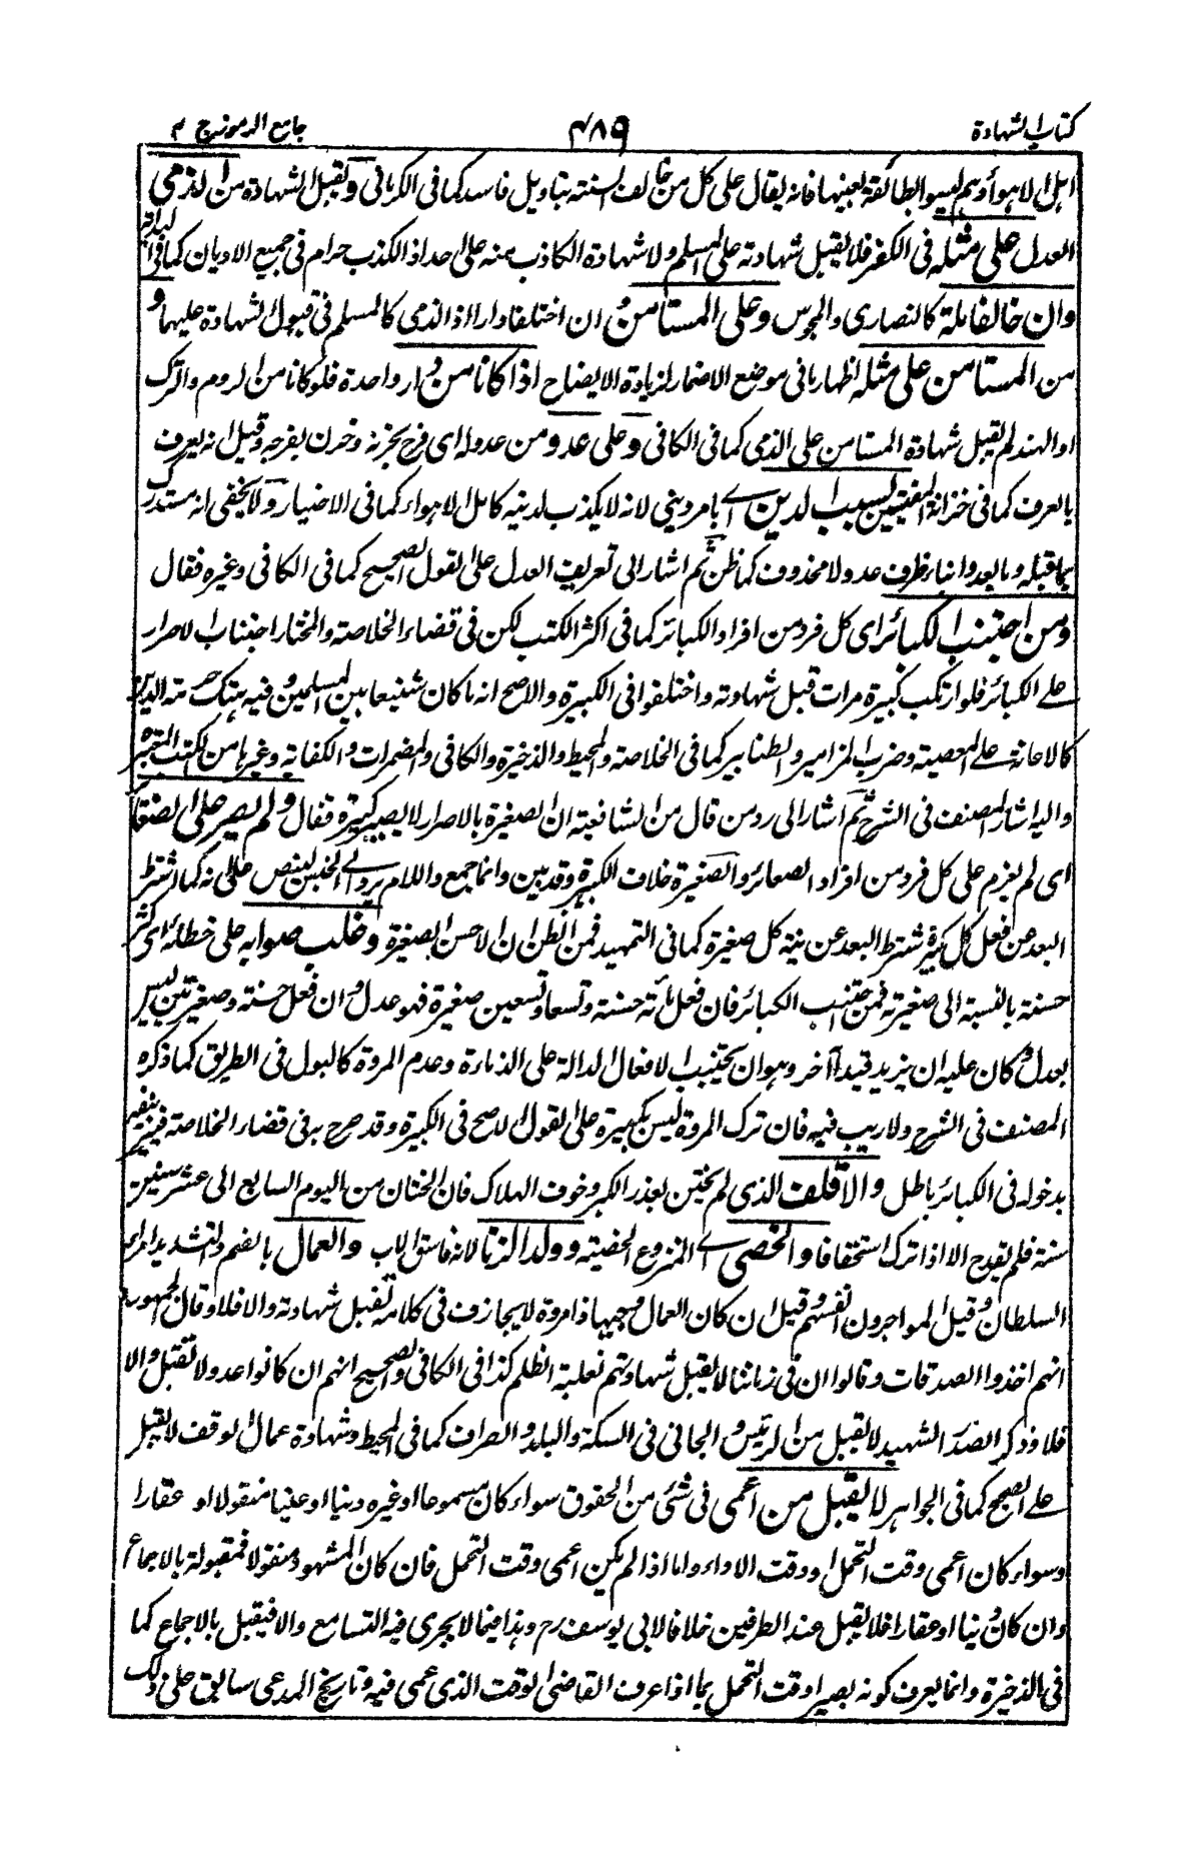 كتاب الشهادة
٤٨٩
جامع الرموز ج ٢
اهل الاهواء وهم ليسوا الطائفة بعينها فانه يقال على كل من خالف السنة بتاويل فاسد كما في الكرماني وتقبل الشهادة من الذمي
العدل على مثله في الكفر فلا يقبل شهادته على المسلم ولا شهادة الكاذب منه على احد اذ الكذب حرام في جميع الاديان كما في الهداية
وان خالفا ملة كالنصارى والمجوس وعلى المستامن وان اختلفا دارا اذ الذمي كالمسلم في قبول الشهادة عليها و
من المستامن على مثله اظهار باني موضع الاضمار لزيادة الايضاح اذا كانا من دار واحدة فلو كانا من الروم والترك
او الهند لم يقبل شهادة المستامن على الذمي كما في الكافي وعلى عدو من عدوله اي فرح بحزنه وحزن بفرحه وقيل انه يعرف
بالعرف كما في خزانة المفتيين بسبب الدين اے بامر ديني لانه لا يكذب لدينه كاهل الاهواء كما في الاختيار ولا يخفى انه مستدرك
بما قبله وما بعده وانباء ظرف عدو لا محذوف كما ظن ثم اشار الى تعريف العدل على القول الصحيح كما في الكافي وغيره فقال
ومن اجتنب الكبائر اي كل فرد من افراد الكبائر كما في اكثر الكتب لكن في قضاء الخلاصة والمختار اجتناب الاصرار
على الكبائر فلو ارتكب كبيرة مرات قبل شهادته واختلفوا في الكبيرة والاصح انه ما كان شنيعا بين المسلمين وفيه هتك حرمة الدين
كالاعانة على المعصية وضرب المزامير والطنابير كما في الخلاصة والمحيط والذخيرة والكافي والمضمرات والكفاية وغيرها من الكتب المعتبرة
واليه اشار المصنف في الشرح ثم اشار الى رد من قال من الشافعية ان الصغيرة بالاصرار لا يصير كبيرة فقال ولم يصر على الصغائر
اي لم يعزم على كل فرد من افراد الصغائر والصغيرة خلاف الكبيرة وقد بين وانما جمع واللام يرد الى الجنس لينص على انه كما اشترط
البعد عن فعل كل كبيرة شترط البعد عن نية كل صغيرة كما في التمهيد فمن الظن ان الاحسن الصغيرة وغلب صوابه على خطائه اي كثر
حسنة بالنسبة الى صغيرته فمن اجتنب الكبائر فان فعل مائة حسنة وتسعا وتسعين صغيرة فهو عدل وان فعل حسنة وصغيرتين ليس
بعدل وكان عليه ان يزيد قيدا آخر وهو ان يجتنب الافعال الدالة على الدناءة وعدم المروة كالبول في الطريق كما ذكره
المصنف في الشرح ولا ريب فيه فان ترك المروة ليس بكبيرة على القول الاصح في الكبيرة وقد صرح به في قضاء الخلاصة فتفسير بعضهم
بدخوله في الكبائر باطل والاقلف الذي لم يختن بعذر الكبر وخوف الهلاك فان الختان من اليوم السابع الى عشر سنين
سنة فلم يقدح الا اذا ترك استخفافا والخصي اے المنزوع الخصية وولد الزنا لانه فاسق الاب والعمال بالضم والتشديد امراء
السلطان وقيل المواجرون انفسهم وقيل ان كان العمال وجيها ذا مروة لا يجازف في كلامه تقبل شهادته والا فلا وقال الجمهور
انهم اخذوا الصدقات وقالوا ان في زماننا لا يقبل شهادتهم لغلبة الظلم كذا في الكافي والصحيح انهم ان كانوا عدولا تقبل والا
فلا وذكر الصدر الشهيد لا يقبل من الرئيس والجاني في السكة والبلد والصراف كما في المحيط وشهادة عمال الوقف لا يقبل
على الصحيح كما في الجواهر لا يقبل من اعمى في شئ من الحقوق سواء كان مسموعا او غيره دينا او عينا منقولا او عقارا
وسواء كان اعمى وقت التحمل او وقت الاداء واما اذا لم يكن اعمى وقت التحمل فان كان المشهود منقولا فمقبولة بالاجماع
وان كان دينا او عقارا فلا يقبل عند الطرفين خلافا لابي يوسف رح وهذا فيما لا يجري فيه التسامع والا فيقبل بالاجماع كما
في الذخيرة وانما يعرف كونه بصيرا وقت التحمل بما اذا عرف القاضي الوقت الذي عمى فيه وتاريخ المدعى سابق على ذلك